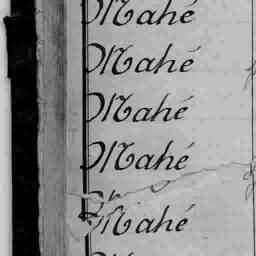 Mahé
Mahé
Mahé
Mahé
Mahé